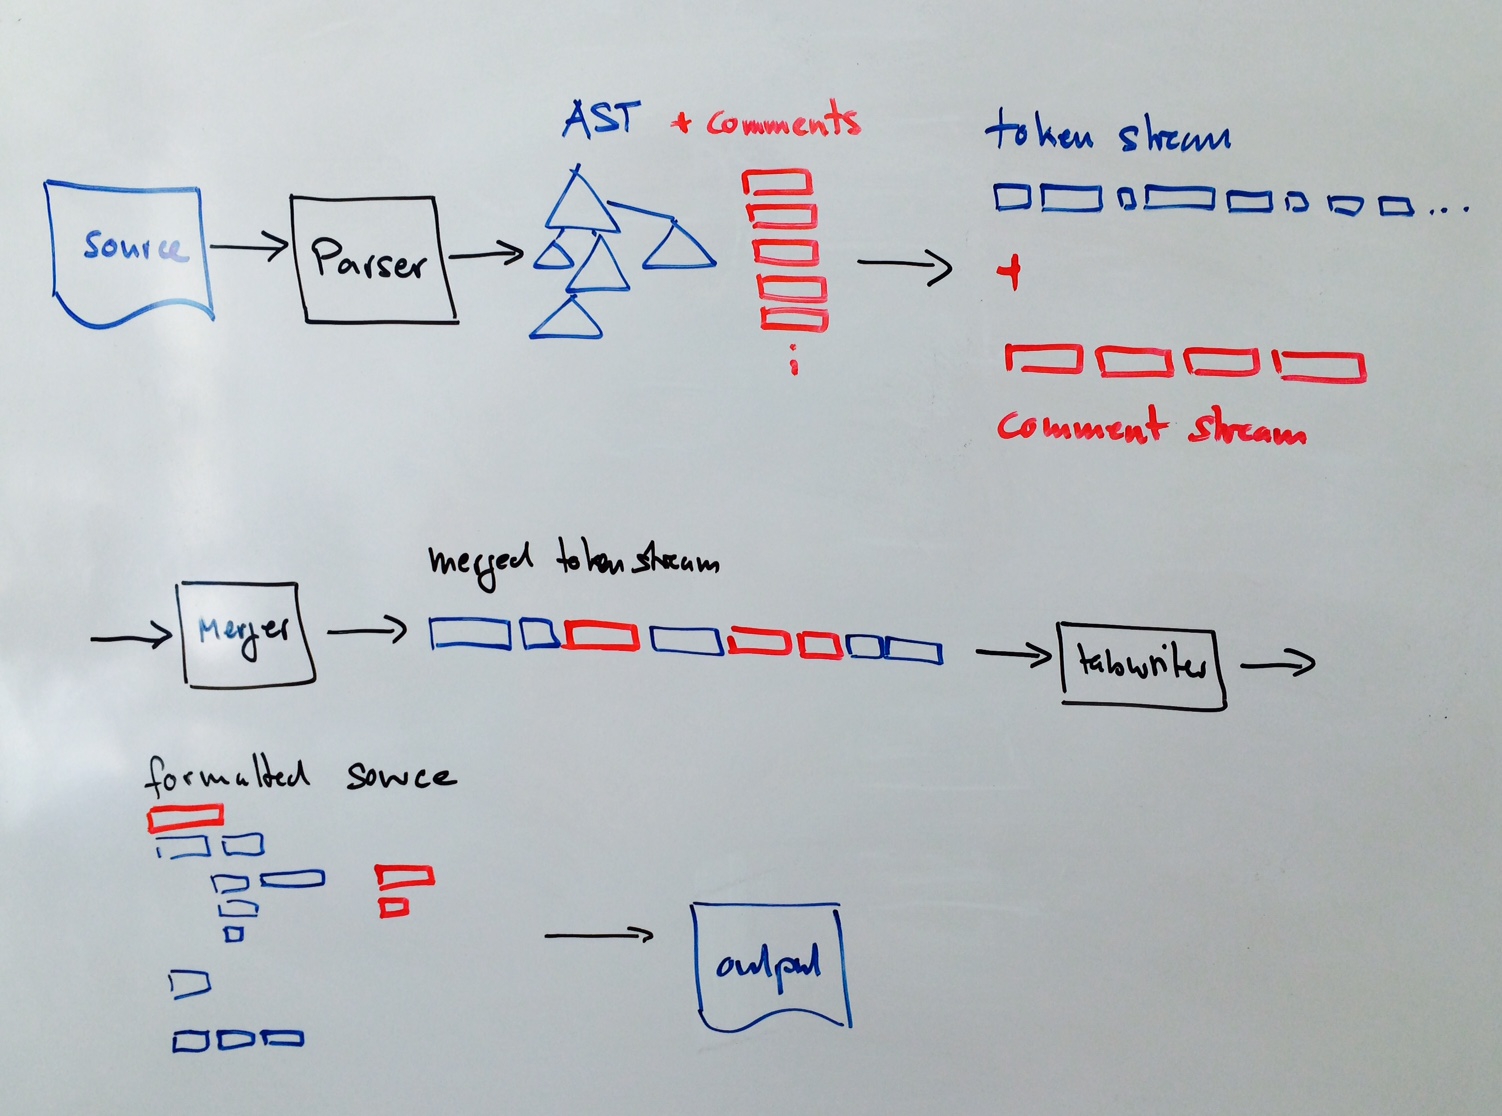 AST + comments
token stream
...
source
Parser
+
comment stream
merged token stream
Merger
tabwriter
formatted source
output